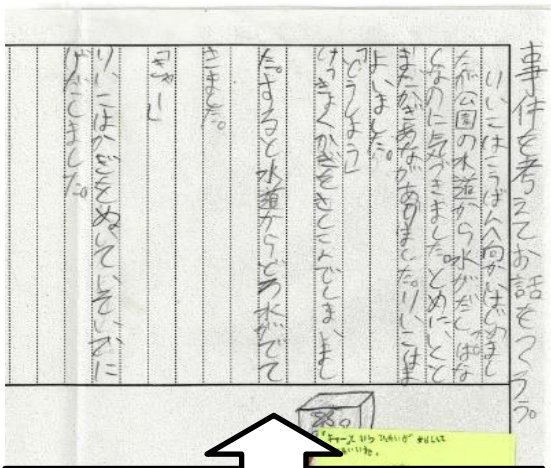 事件を考えてお話をつくろう。
りいこはこうばんへ向かいはじめまし
たが公園の水道から水がだしっぱな
しなのに気づきました。とめにいくと
またかぎあながありました。りいこはま
よいました。
「どうしよう」
けっきょくかぎをさしこんでしまいまし
た。すると水道からどろ水がでて
きました。
「きゃー」
りいこはかぎをぬいていそいでに
げだしました。